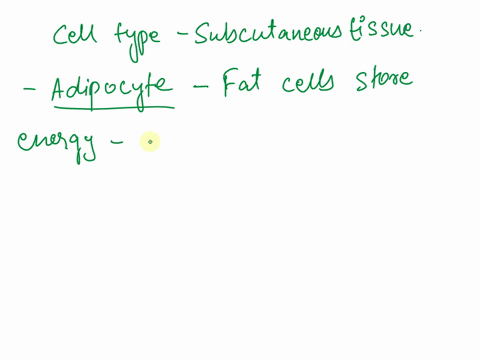 Cell type - Subcutaneous tissue.
- Adipocyte - Fat cells store
energy -